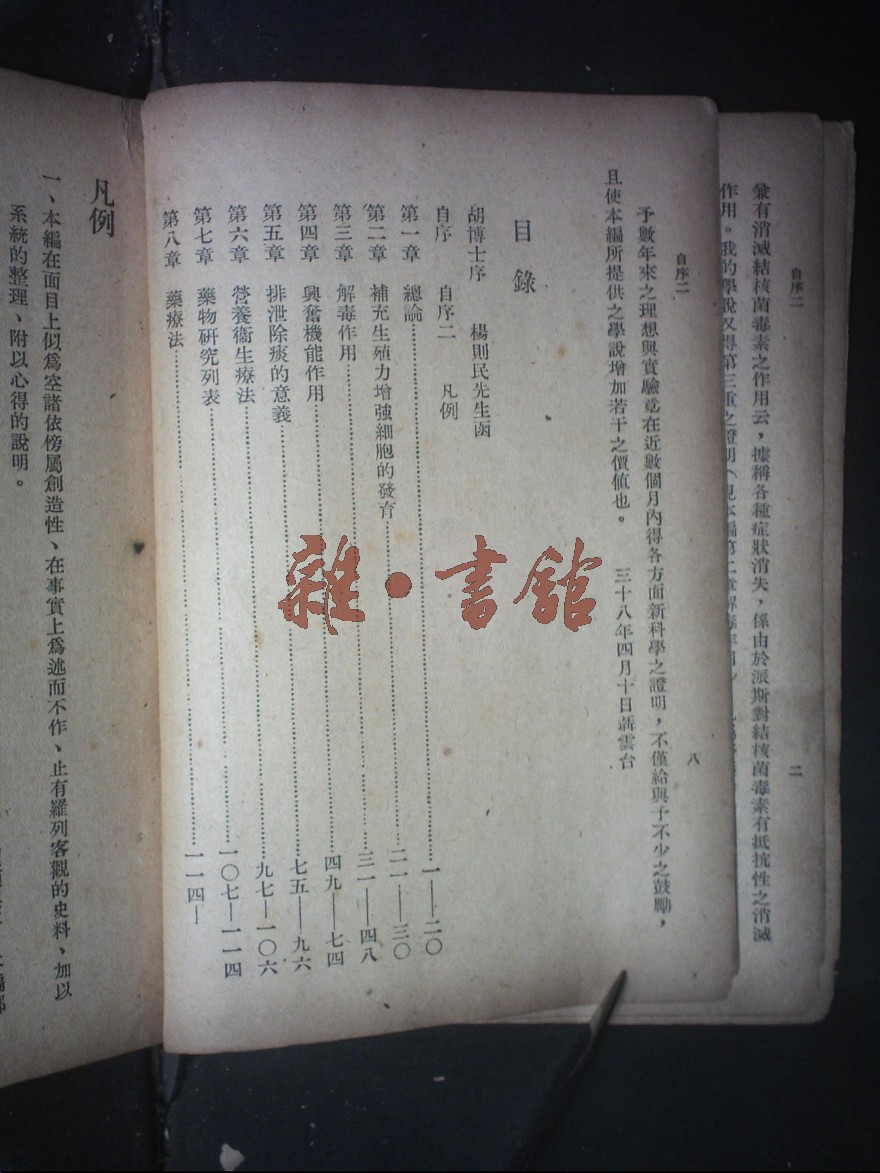 自序二
二
兼有消滅結核菌毒素之作用云，據稱各種症狀消失，係由於派斯對結核菌毒素有抵抗性之消滅
作用。我的學說又得第三重之證明
自序二
八
予數年來之理想與實驗竟在近數個月內得各方面新科學之證明，不僅給與予不少之鼓勵，
且使本編所提供之學說增加若干之價值也。 三十八年四月十日 雲台
目錄
胡博士序 楊則民先生函
自序 自序二 凡例
第一章 總論 一——二〇
第二章 補充生殖力增強細胞的發育 二一——三〇
第三章 解毒作用 三一——四八
第四章 興奮機能作用 四九——七四
第五章 排泄除痰的意義 七五——九六
第六章 營養衞生療法 九七—一〇六
第七章 藥物研究列表 一〇七—一一四
第八章 藥療法 一一四—
凡例
一、本編在面目上似爲空諸依傍屬創造性、在事實上爲述而不作、止有羅列客觀的史料、加以
系統的整理、附以心得的說明。
雜·書館